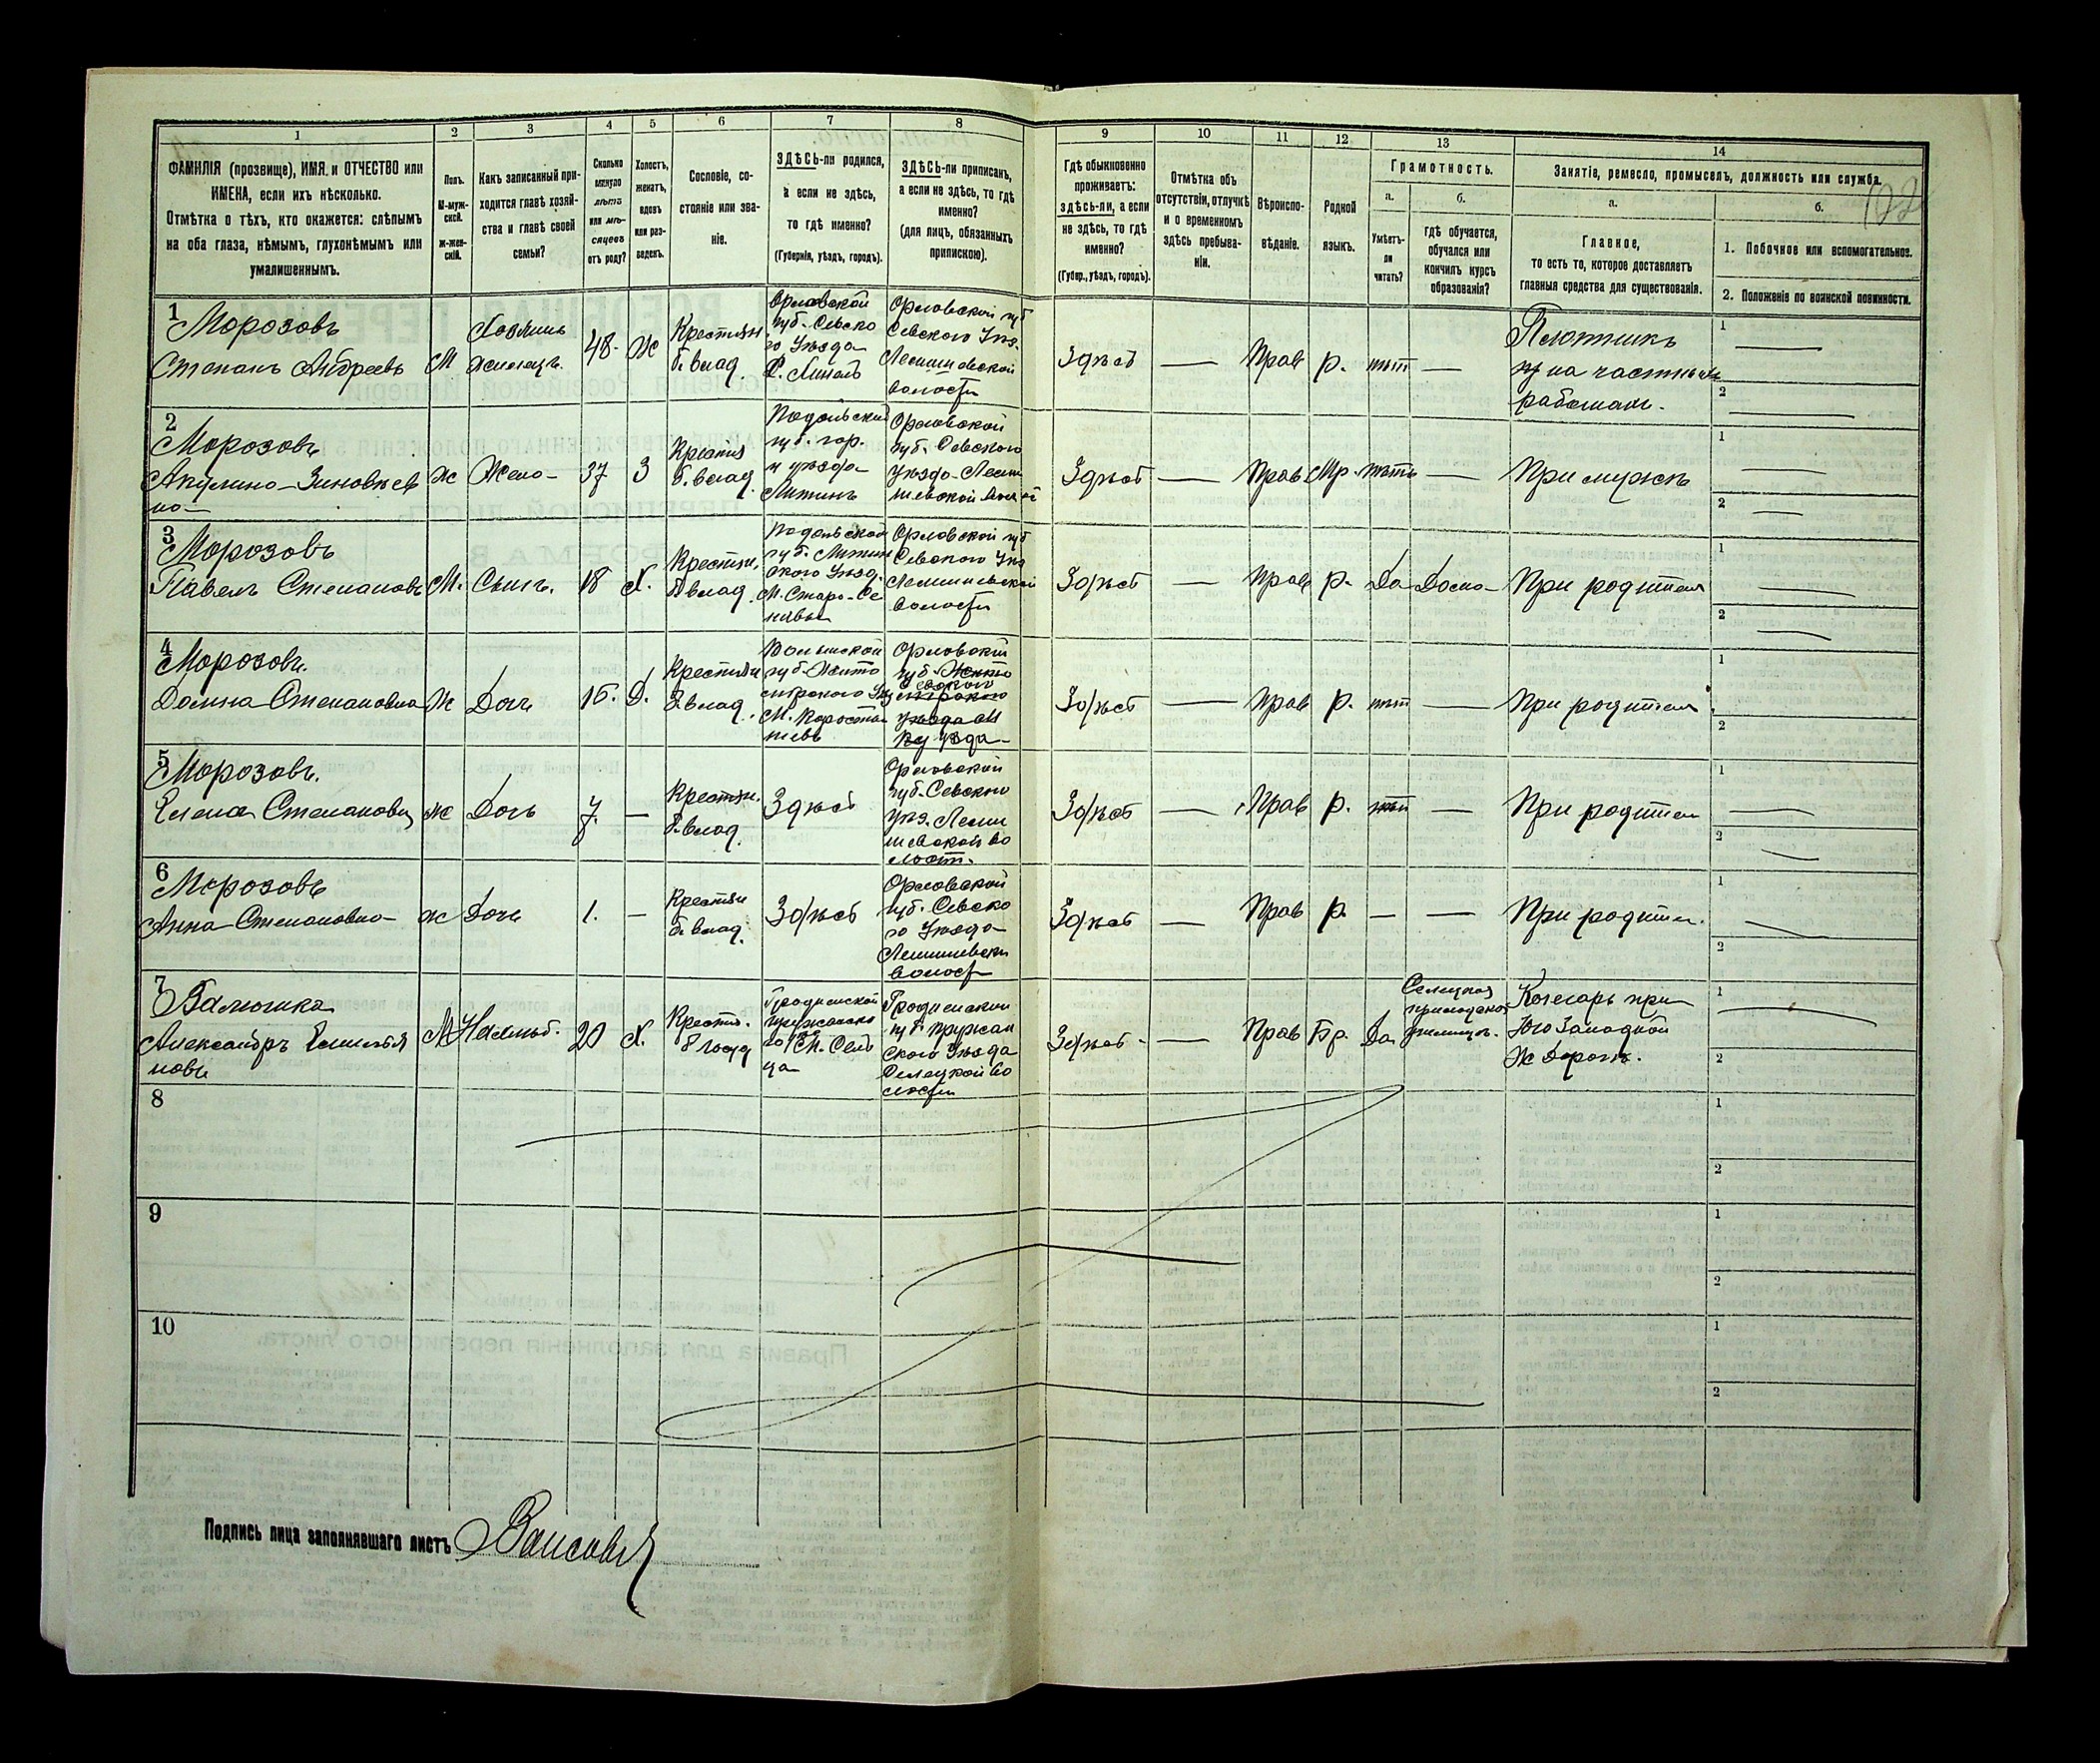 1 2 3 4 5 6 7 8 9 10 11 12 13 14
ФАМИЛІЯ (прозвище), ИМЯ и ОТЧЕСТВО или
ИМЕНА, если ихъ нѣсколько.
Отмѣтка о тѣхъ, кто окажется: слѣпымъ
на оба глаза, нѣмымъ, глухонѣмымъ или
умалишеннымъ.
Полъ.
М-муж-
ской.
Ж-жен-
скій.
Какъ записанный при-
ходится главѣ хозяй-
ства и главѣ своей
семьи?
Сколько
минуло
лѣтъ
или мѣ-
сяцевъ
отъ роду?
Холостъ,
женатъ,
вдовъ
или раз-
веденъ.
Сословіе, со-
стояніе или зва-
ніе.
ЗДѢСЬ-ли родился,
а если не здѣсь,
то гдѣ именно?
(Губернія, уѣздъ, городъ).
ЗДѢСЬ-ли приписанъ,
а если не здѣсь, то гдѣ
именно?
(для лицъ, обязанныхъ
припискою).
Гдѣ обыкновенно
проживаетъ:
здѣсь-ли, а если
не здѣсь, то гдѣ
именно?
(Губер., уѣздъ, городъ).
Отмѣтка объ
отсутствіи, отлучкѣ
и о временномъ
здѣсь пребыва-
ніи.
Вѣроиспо-
вѣданіе.
Родной
языкъ.
Грамотность.
а.
Умѣетъ-
ли
читать?
б.
гдѣ обучается,
обучался или
кончилъ курсъ
образованія?
Занятіе, ремесло, промыселъ, должность или служба.
а.
Главное,
то есть то, которое доставляетъ
главныя средства для существованія.
б.
1. Побочное или вспомогательное.
2. Положеніе по воинской повинности.
1
Морозовъ
Степанъ Андреевъ
М
Хозяинъ
48.
Ж
Крестьян
б. влад.
Орловской
губ. Севско
го Уѣзда
Орловской губ
Севского Уѣз.
волости
Здѣсь
—
Прав
р.
нѣт
—
Плотникъ
на частных
работах.
1
2
2
Морозовъ
Акулина Зиновьев
на
Ж
Жена
37
З
б. влад.
Подольской
губ. гор.
и уѣзда
Литинъ
Орловской
губ. Севского
Здѣсь
—
Прав
Мр.
нѣтъ
—
При мужѣ
1
2
3
Морозовъ
Павелъ Степановъ
М.
Сынъ.
18
Х.
Крестьян.
б влад.
Подольской
губ. Литин
ского Уѣзд.
М. Старо-Се
нявы
Орловской губ
Севского Уѣз
волости
Здѣсь
—
Прав
р.
Да
Дома
При родител
1
2
4
Морозовъ.
Домна Степановна
Ж
Дочь
16.
Д.
Крестьян
б влад.
Волынской
губ. Жито
мирского Уѣз
М. Коросты
шевъ
Орловской
губ. Жито
Севского
мирского
уѣзда М
Здѣсь
—
Прав
р.
нѣт
—
При родител
1
2
5
Морозовъ.
Елена Степановн
ж
Дочь
7.
—
Крестьян.
б. влад.
Здѣсь
Орловской
губ. Севского
уѣз.
шевской во
лост.
Здѣсь
—
Прав
р.
нѣт
—
При родител
1
2
6
Морозовъ
Анна Степановна
ж
Дочь
1.
—
Крестьян
б. влад.
Здѣсь
Орловской
губ. Севско
го Уѣзда
волост
Здѣсь
—
Прав
р.
—
—
При родител.
1
2
7
Александръ
новъ
М
20
Х.
Крестьян.
Гродненской
Пружанско
го
Гродненской
губ. Пружан
ского Уѣзда
Селецкой во
лости
Здѣсь
Прав
Бр.
Да
Селецкая
приходское
училищ.
Кочегаръ при
Юго Западной
Ж Дорогѣ.
1
2
8
1
2
9
1
2
10
1
2
Подпись лица заполнявшаго листъ